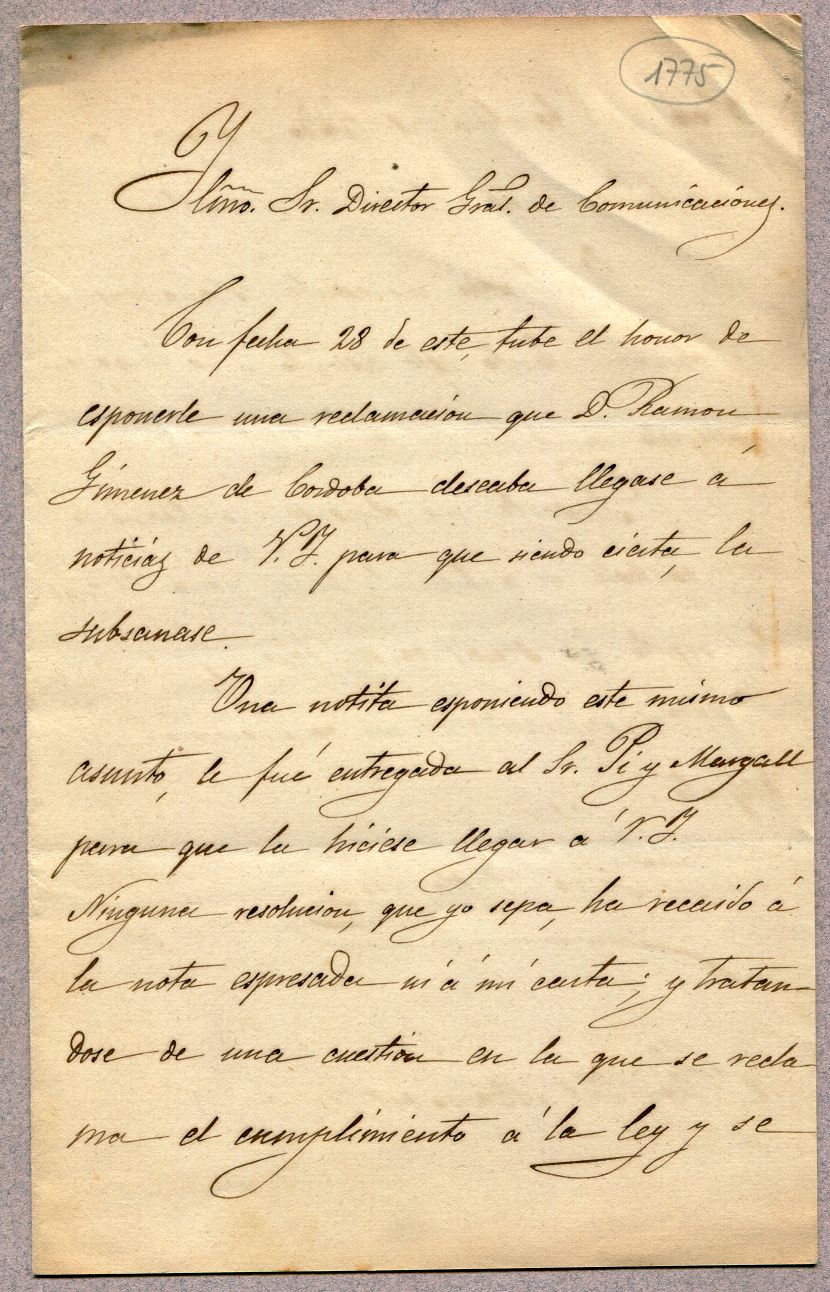 1775
Ylmo. Sr. Director Gral. de Comunicaciones.
Con fecha 28 de este, tube el honor de
esponerle una reclamación que D. Ramon
Gimenez de Cordoba deseaba llegase á
noticias de V.I. para que siendo cierta, la
subsanase.
Una notita esponiendo este mismo
asunto, le fué entregada al Sr. Pi y Margall
para que la hiciese llegar á V.I.
Ninguna resolucion, que yo sepa, ha recaido á
la nota espresada ni á mi carta; y tratan-
dose de una cuestion en la que se recla
ma el cumplimiento á la ley y se